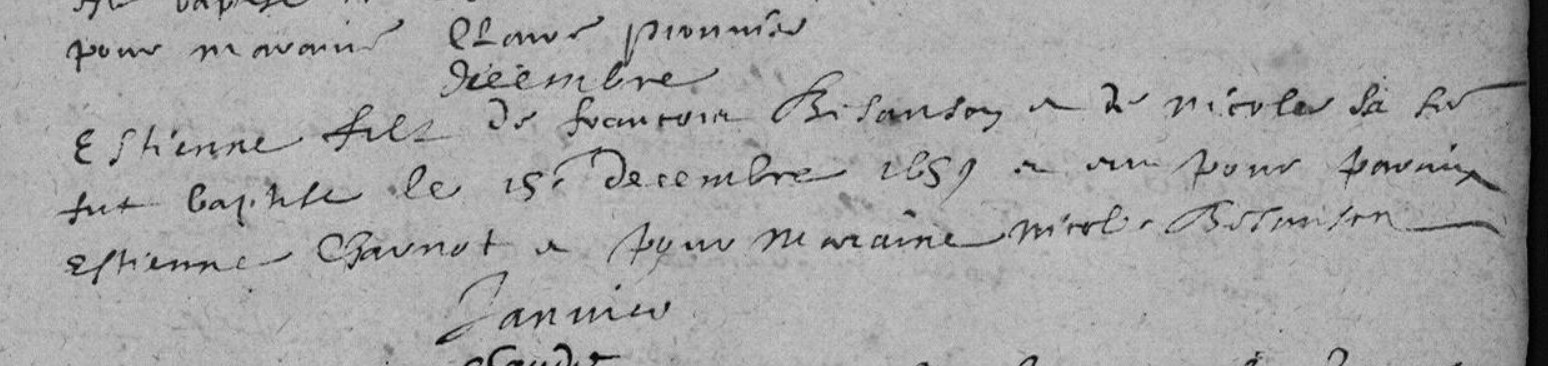 baptise
pour maraine Claude pionnier
Decembre
Estienne filz de francois Bisanson e de nicole sa fe
fut baptise le 15e Decembre 1659 e eu pour parain
Estienne Charnot e pour maraine nicole Bisanson
Janvier
Claude